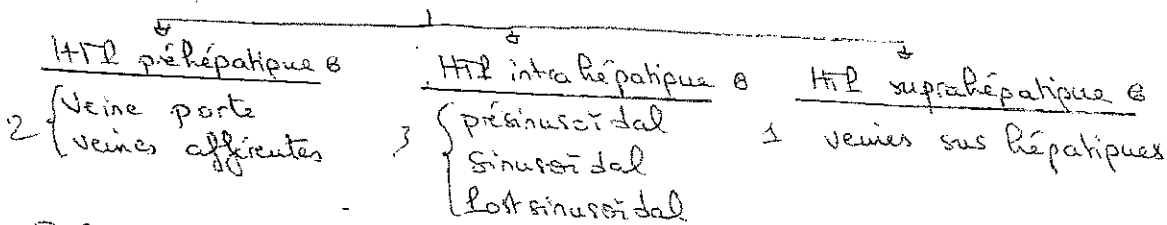 HTP préhépatique :
2 { Veine porte
veines afférentes
HTP intrahépatique :
3 { présinusoïdal
sinusoïdal
Post sinusoïdal
HTP suprahépatique :
1 veines sus hépatiques